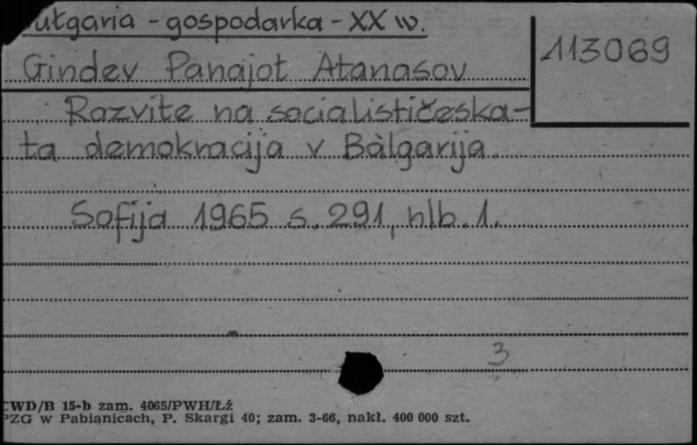 Bułgaria - gospodarka - XX w.
113069
Gindev Panajot Atanasov
Razvite na socialističeska-
ta demokracija v Bàlgarija
Sofija 1965 s. 291, nlb. 1.
3
CWD/B 15-b zam. 4065/PWH/Łź
PZG w Pabianicach, P. Skargi 40; zam. 3-66, nakł. 400 000 szt.